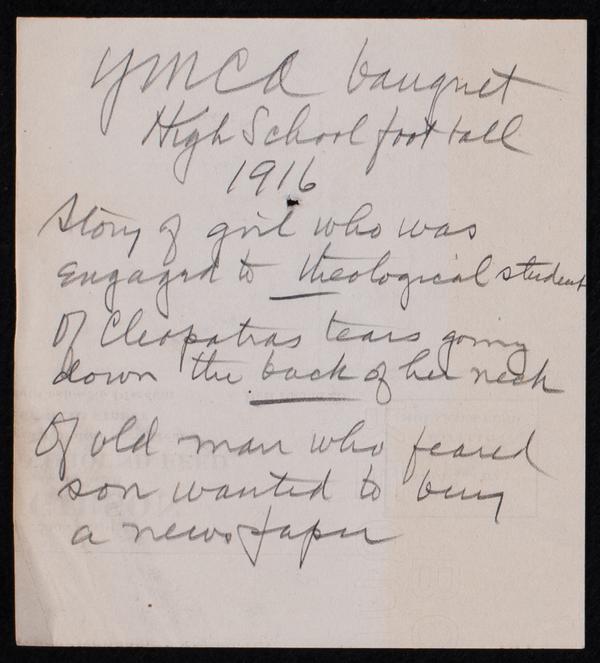 YMCA banquet
High School foot ball
1916
Story of girl who was
engaged to theological student
Of Cleopatras tears going
down the back of her neck
Of old man who feared
son wanted to buy
a newspaper